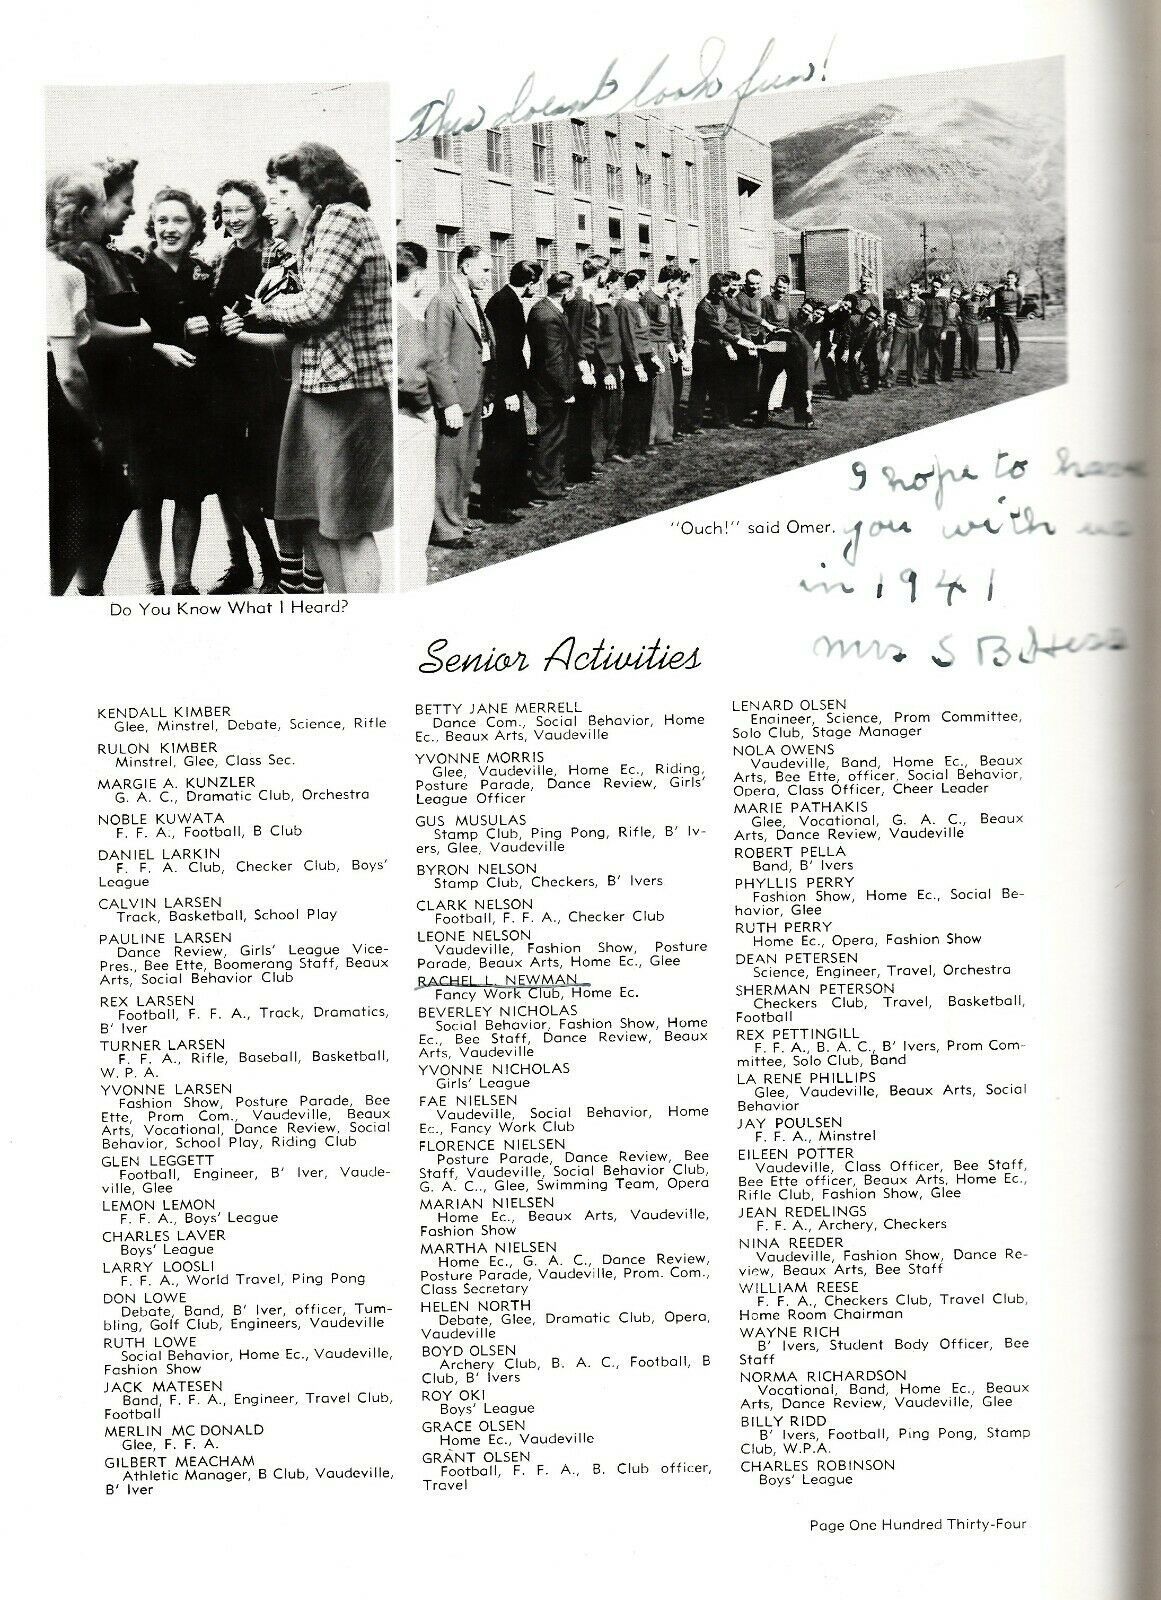 This doesn't look fun!
"Ouch!" said Omer.
I hope to have
you with us
in 1941
Mrs S B Hess
Do You Know What I Heard?
Senior Activities
KENDALL KIMBER
Glee, Minstrel, Debate, Science, Rifle
RULON KIMBER
Minstrel, Glee, Class Sec.
MARGIE A. KUNZLER
G. A. C., Dramatic Club, Orchestra
NOBLE KUWATA
F. F. A., Football, B Club
DANIEL LARKIN
F. F. A. Club, Checker Club, Boys'
League
CALVIN LARSEN
Track, Basketball, School Play
PAULINE LARSEN
Dance Review, Girls' League Vice-
Pres., Bee Ette, Boomerang Staff, Beaux
Arts, Social Behavior Club
REX LARSEN
Football, F. F. A., Track, Dramatics,
B' Iver
TURNER LARSEN
F. F. A., Rifle, Baseball, Basketball,
W. P. A.
YVONNE LARSEN
Fashion Show, Posture Parade, Bee
Ette, Prom Com., Vaudeville, Beaux
Arts, Vocational, Dance Review, Social
Behavior, School Play, Riding Club
GLEN LEGGETT
Football, Engineer, B' Iver, Vaude-
ville, Glee
LEMON LEMON
F. F. A., Boys' League
CHARLES LAVER
Boys' League
LARRY LOOSLI
F. F. A., World Travel, Ping Pong
DON LOWE
Debate, Band, B' Iver, officer, Tum-
bling, Golf Club, Engineers, Vaudeville
RUTH LOWE
Social Behavior, Home Ec., Vaudeville,
Fashion Show
JACK MATESEN
Band, F. F. A., Engineer, Travel Club,
Football
MERLIN MC DONALD
Glee, F. F. A.
GILBERT MEACHAM
Athletic Manager, B Club, Vaudeville,
B' Iver
BETTY JANE MERRELL
Dance Com., Social Behavior, Home
Ec., Beaux Arts, Vaudeville
YVONNE MORRIS
Glee, Vaudeville, Home Ec., Riding,
Posture Parade, Dance Review, Girls'
League Officer
GUS MUSULAS
Stamp Club, Ping Pong, Rifle, B' Iv-
ers, Glee, Vaudeville
BYRON NELSON
Stamp Club, Checkers, B' Ivers
CLARK NELSON
Football, F. F. A., Checker Club
LEONE NELSON
Vaudeville, Fashion Show, Posture
Parade, Beaux Arts, Home Ec., Glee
RACHEL L. NEWMAN
Fancy Work Club, Home Ec.
BEVERLEY NICHOLAS
Social Behavior, Fashion Show, Home
Ec., Bee Staff, Dance Review, Beaux
Arts, Vaudeville
YVONNE NICHOLAS
Girls' League
FAE NIELSEN
Vaudeville, Social Behavior, Home
Ec., Fancy Work Club
FLORENCE NIELSEN
Posture Parade, Dance Review, Bee
Staff, Vaudeville, Social Behavior Club,
G. A. C., Glee, Swimming Team, Opera
MARIAN NIELSEN
Home Ec., Beaux Arts, Vaudeville,
Fashion Show
MARTHA NIELSEN
Home Ec., G. A. C., Dance Review,
Posture Parade, Vaudeville, Prom. Com.,
Class Secretary
HELEN NORTH
Debate, Glee, Dramatic Club, Opera,
Vaudeville
BOYD OLSEN
Archery Club, B. A. C., Football, B
Club, B' Ivers
ROY OKI
Boys' League
GRACE OLSEN
Home Ec., Vaudeville
GRANT OLSEN
Football, F. F. A., B. Club officer,
Travel
LENARD OLSEN
Engineer, Science, Prom Committee,
Solo Club, Stage Manager
NOLA OWENS
Vaudeville, Band, Home Ec., Beaux
Arts, Bee Ette, officer, Social Behavior,
Opera, Class Officer, Cheer Leader
MARIE PATHAKIS
Glee, Vocational, G. A. C., Beaux
Arts, Dance Review, Vaudeville
ROBERT PELLA
Band, B' Ivers
PHYLLIS PERRY
Fashion Show, Home Ec., Social Be-
havior, Glee
RUTH PERRY
Home Ec., Opera, Fashion Show
DEAN PETERSEN
Science, Engineer, Travel, Orchestra
SHERMAN PETERSON
Checkers Club, Travel, Basketball,
Football
REX PETTINGILL
F. F. A., B. A. C., B' Ivers, Prom Com-
mittee, Solo Club, Band
LA RENE PHILLIPS
Glee, Vaudeville, Beaux Arts, Social
Behavior
JAY POULSEN
F. F. A., Minstrel
EILEEN POTTER
Vaudeville, Class Officer, Bee Staff,
Bee Ette officer, Beaux Arts, Home Ec.,
Rifle Club, Fashion Show, Glee
JEAN REDELINGS
F. F. A., Archery, Checkers
NINA REEDER
Vaudeville, Fashion Show, Dance Re-
view, Beaux Arts, Bee Staff
WILLIAM REESE
F. F. A., Checkers Club, Travel Club,
Home Room Chairman
WAYNE RICH
B' Ivers, Student Body Officer, Bee
Staff
NORMA RICHARDSON
Vocational, Band, Home Ec., Beaux
Arts, Dance Review, Vaudeville, Glee
BILLY RIDD
B' Ivers, Football, Ping Pong, Stamp
Club, W.P.A.
CHARLES ROBINSON
Boys' League
Page One Hundred Thirty-Four